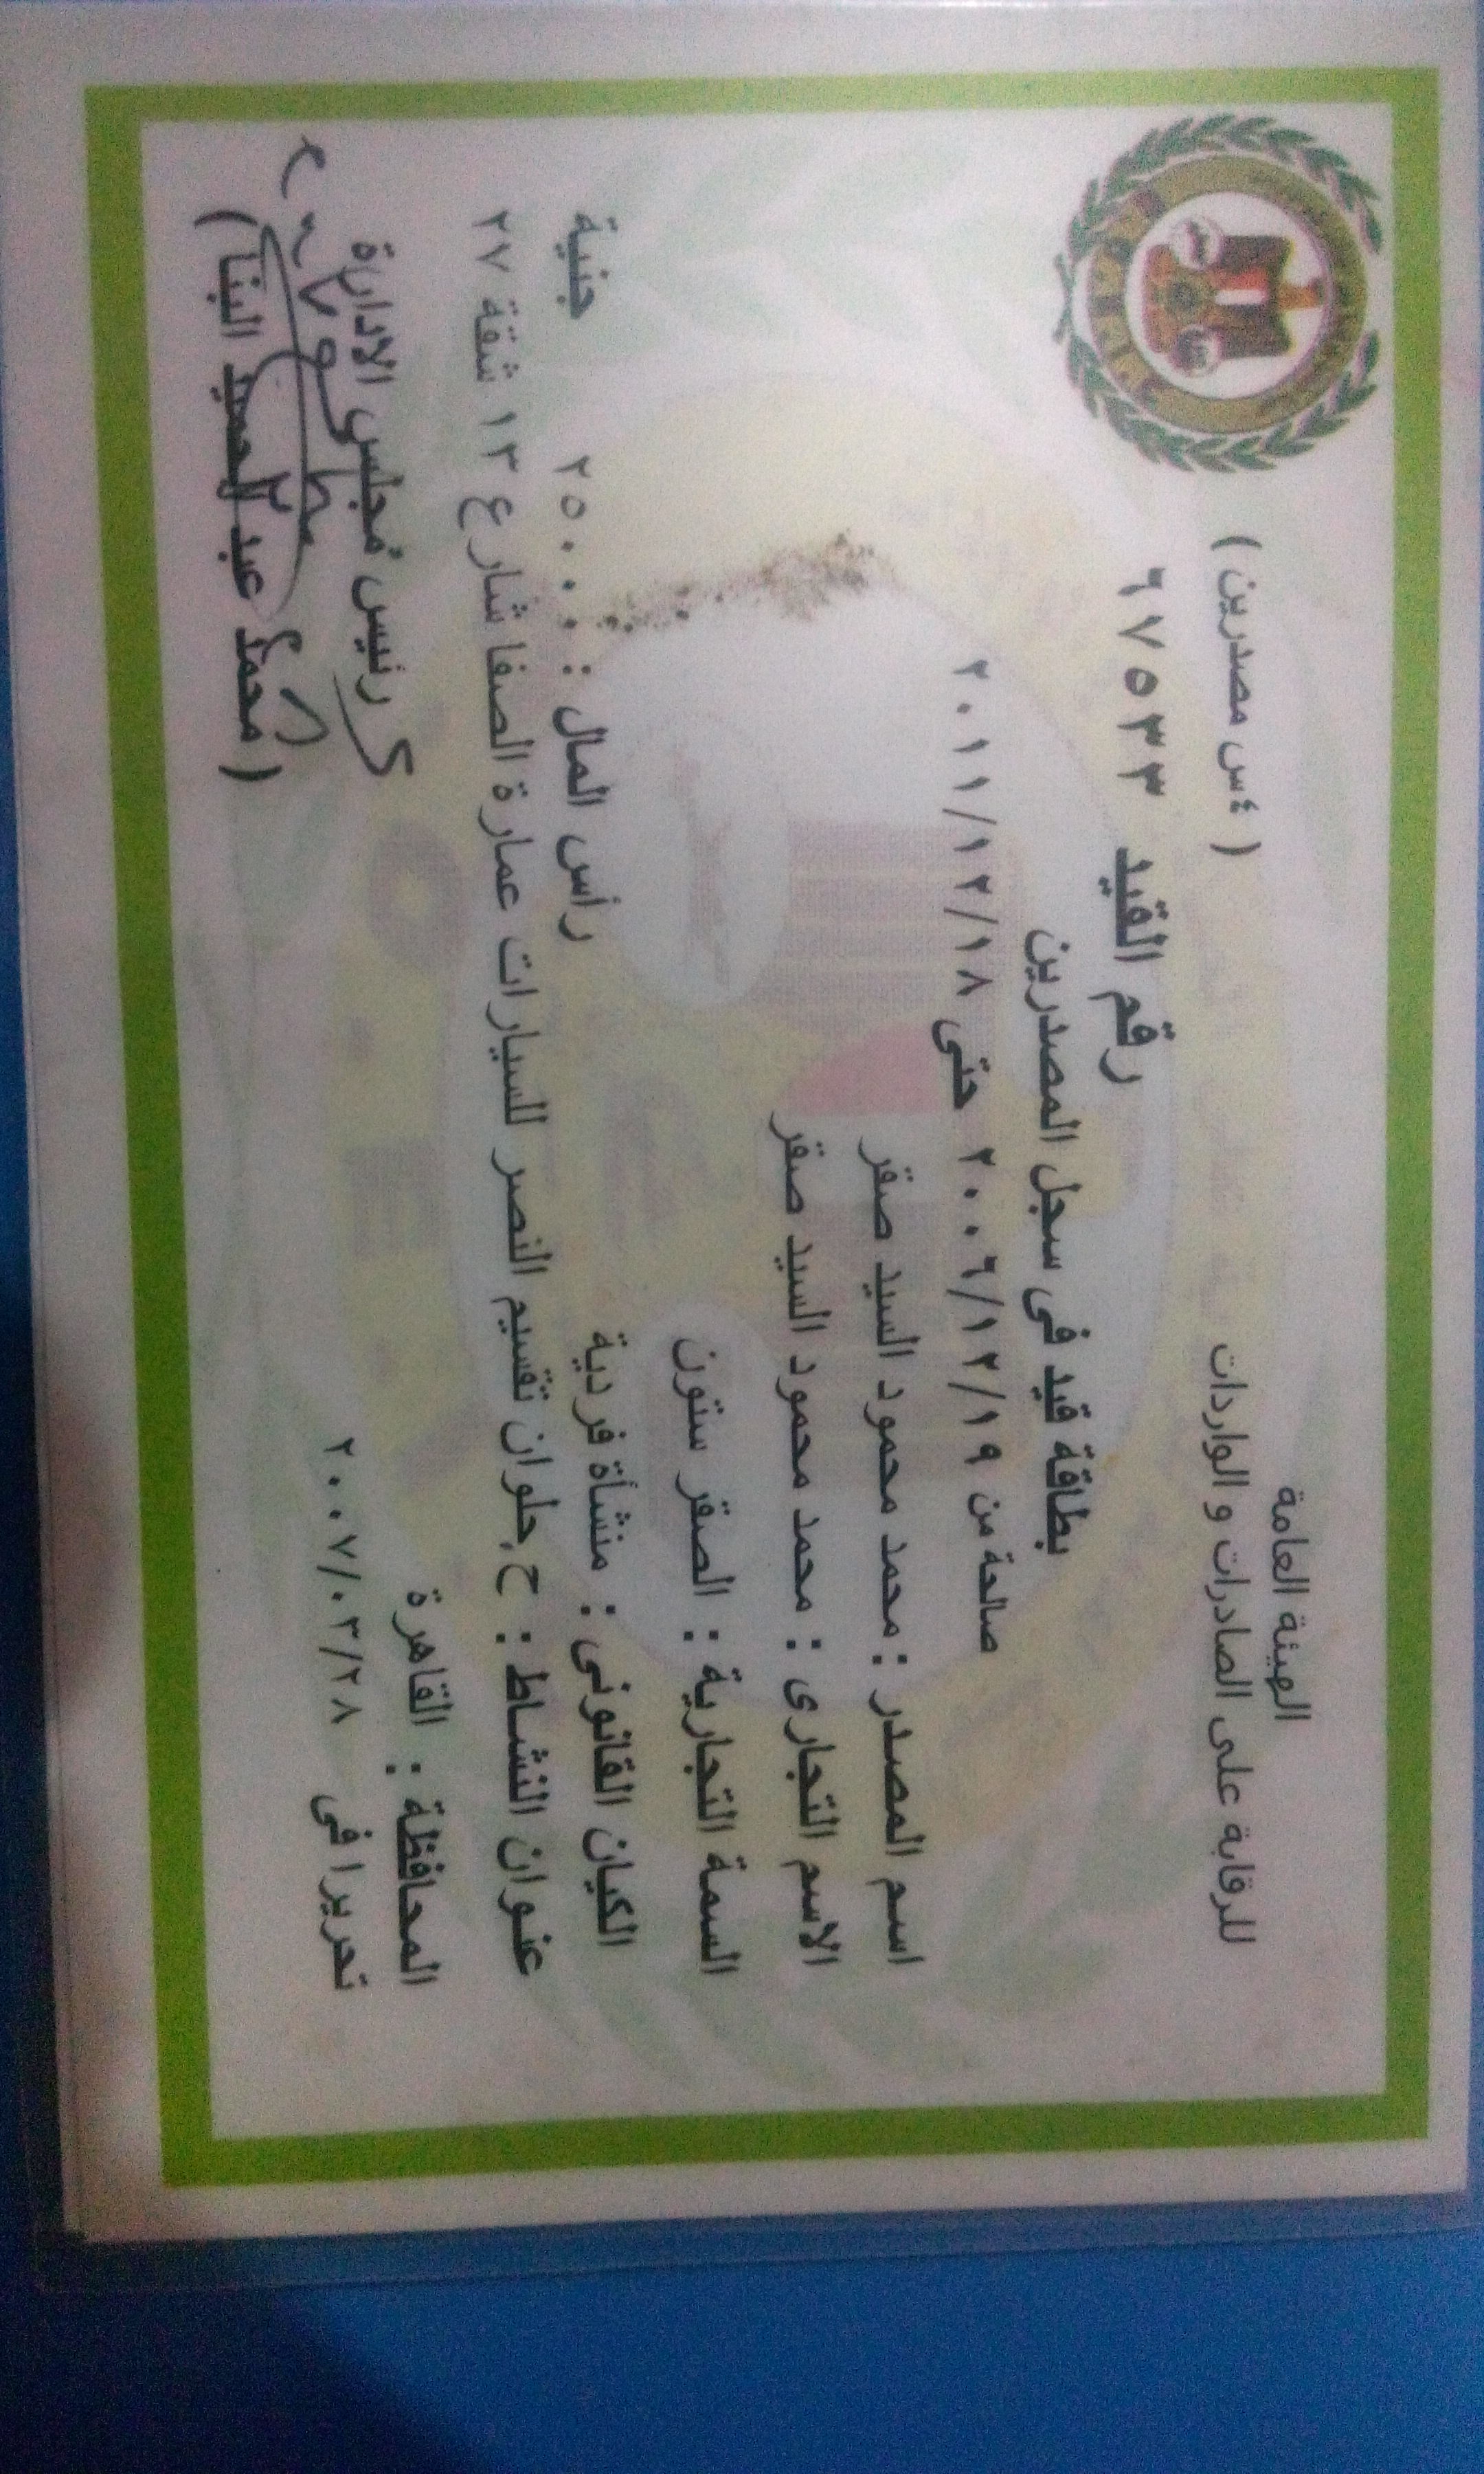 الهيئة العامة
للرقابة على الصادرات و الواردات
( ٤س مصدرين )
رقم القيد ٦٧٥٣٣
بطاقة قيد فى سجل المصدرين
صالحة من ٢٠٠٦/١٢/١٩ حتى ٢٠١١/١٢/١٨
اسم المصدر : محمد محمود السيد صقر
الاسم التجارى : محمد محمود السيد صقر
السمة التجارية : الصقر ستون
الكيان القانونى : منشأة فردية رأس المال : ٢٥٠٠٠ جنية
عنوان النشاط : ح,حلوان تقسيم النصر للسيارات عمارة الصفا شارع ١٣ شقة ٢٧
المحافظة : القاهرة
تحريرا فى ٢٠٠٧/٠٣/٢٨
رئيس مجلس الادارة
( محمد عبد الحميد البنا )